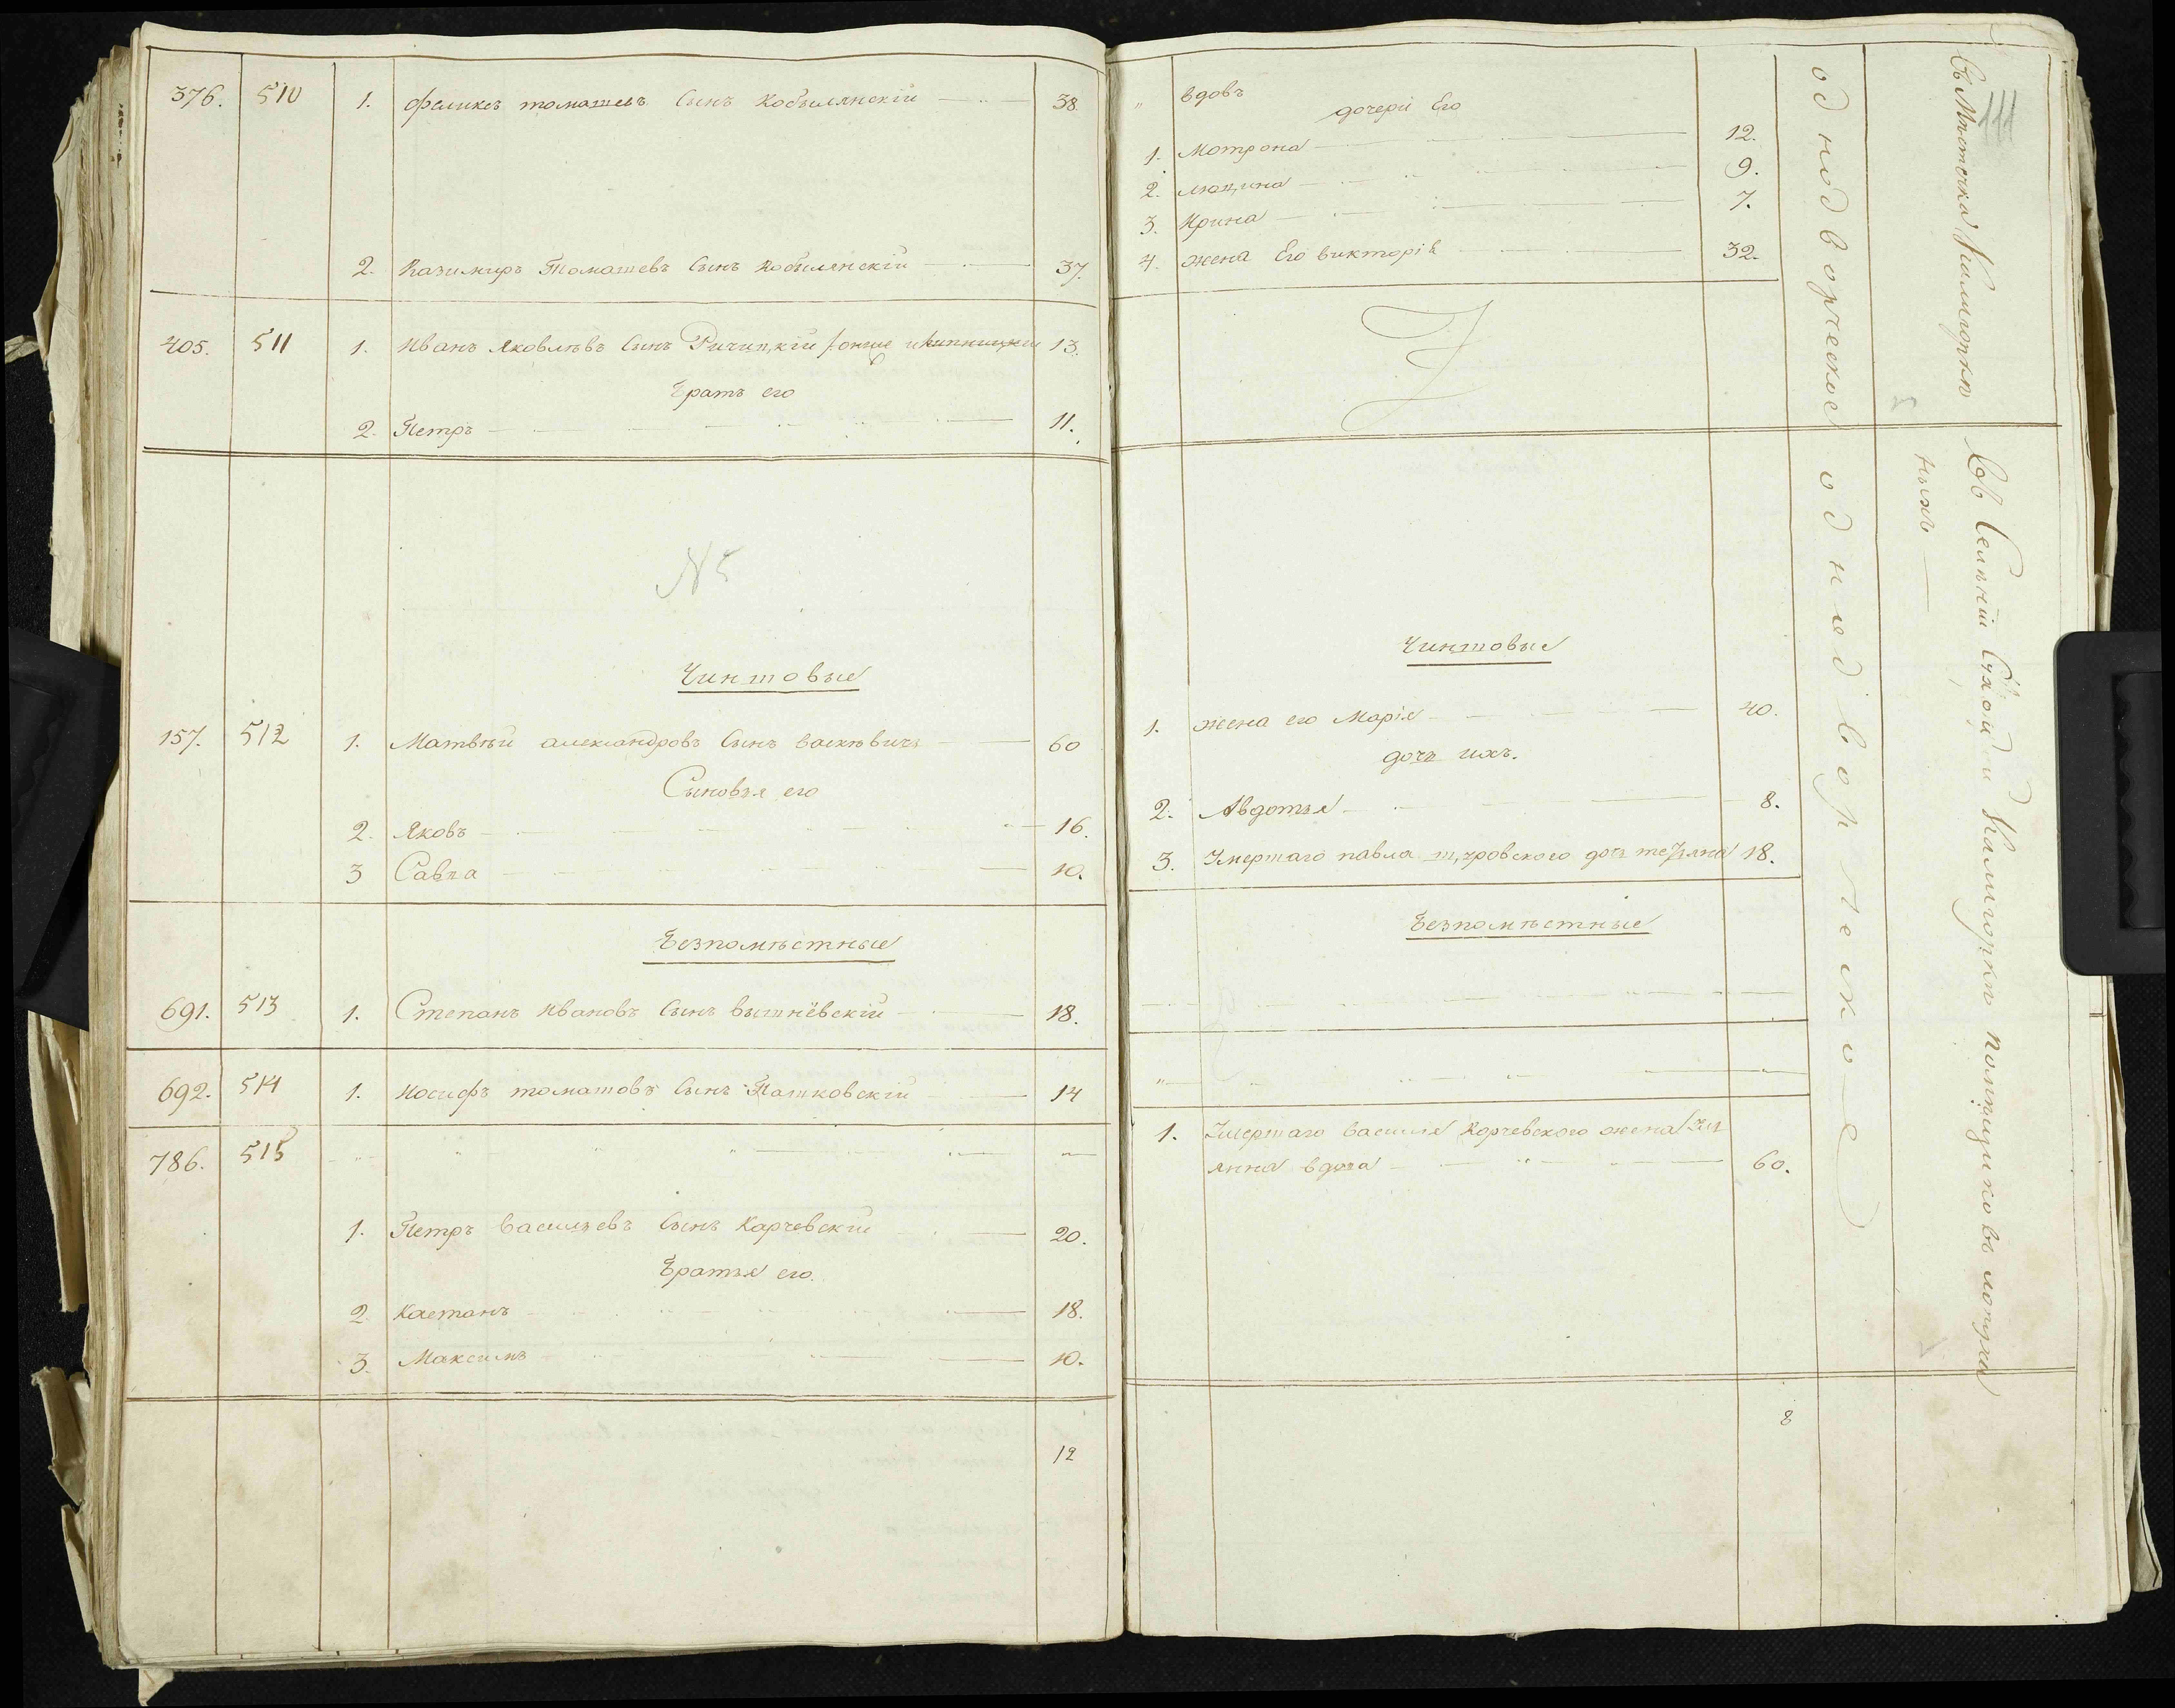 376. 510 1. Феликсъ томашевъ Сынъ Кобылянскій 38.
2. Казимиръ Томашевъ Сынъ Кобылянскій 37.
405. 511 1. Иванъ Яковлѣвъ Сынъ Ричицкій 13.
Братъ его
2. Петръ 11.
№ 5
Чиншовые
157. 512 1. Матвѣй александровъ Сынъ васкѣвичъ 60
Сыновья его
2. Яковъ 16.
3 Савва 10.
Безпомѣстные
691. 513 1. Степанъ Ивановъ Сынъ вышнёвскій 18.
692. 514 1. Иосифъ томашовъ Сынъ Пашковскій 14
786. 515
1. Петръ Васильевъ Сынъ Карчевскій 20.
Братья его.
2 Каетанъ 18.
3. Максимъ 10.
12
111
" вдовъ
дочери Его
1. Мотрона 12.
2. люцина 9.
3. Ирина 7.
4. жена Его викторія 32.
Чиншовые
1. жена его Марія 40.
дочь ихъ.
2. Авдотья 8.
3. Умершаго павла дочь 18.
Безпомѣстные
1. Умершаго Василія Корчевского жена
янна вдова 60.
8
однодворческое
однодворческое
Въ Мѣстечкѣ Калигоркѣ
Въ Селѣніи Сухой Калигоркѣ помѣщиковъ